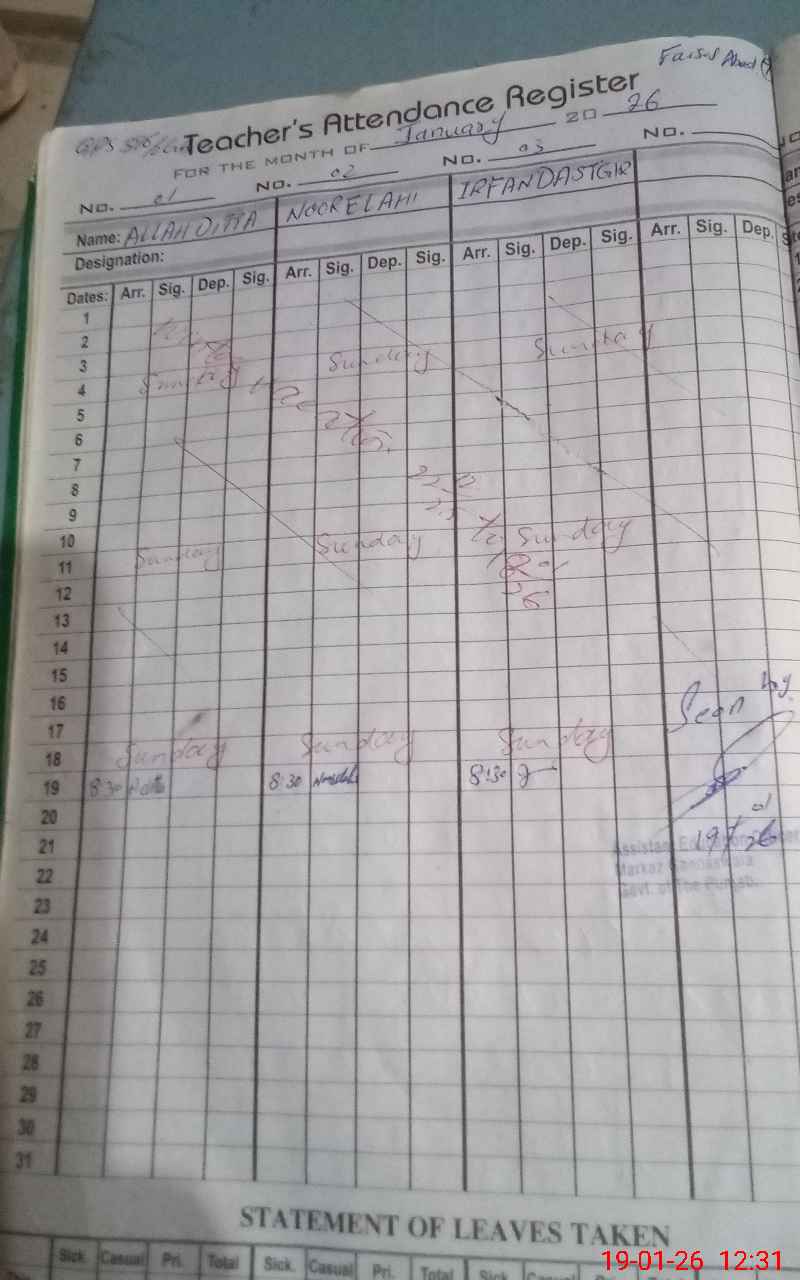 Teacher's Attendance Register
FOR THE MONTH OF January 20 26
No. 01 No. 02 No. 03 No.
Name: ALLAH DITTA NOOR ELAHI IRFAN DASTGIR
Designation:
Dates: Arr. Sig. Dep. Sig. Arr. Sig. Dep. Sig. Arr. Sig. Dep. Sig. Arr. Sig. Dep.
1
2
3
4 Sunday Sunday Sunday
5
6
7
8
9
10
11 Sunday Sunday Sunday
12
13
14
15
16
17
18 Sunday Sunday Sunday
19 8:30 8:30 8:30
20
21
22
23
24
25
26
27
28
29
30
31
Seen
19/01/26
Govt. of The Punjab.
STATEMENT OF LEAVES TAKEN
Sick Casual Pri. Total Sick. Casual Pri. Total Sick Casual
19-01-26 12:31